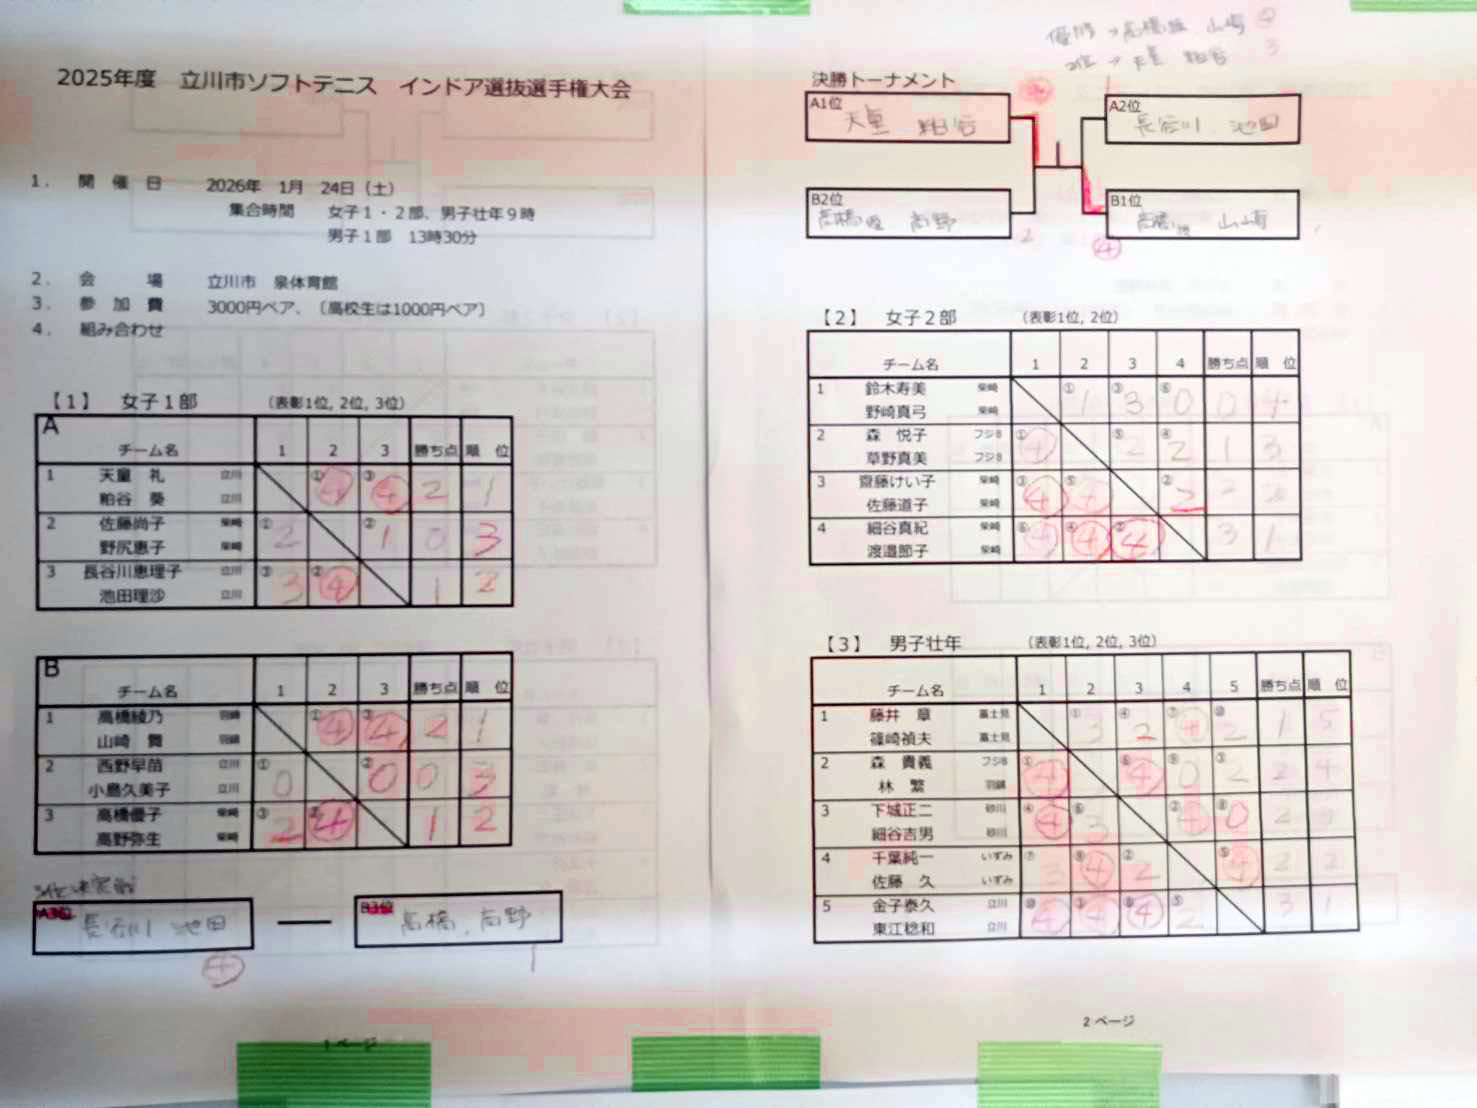 2025年度 立川市ソフトテニス インドア選抜選手権大会
1. 開催日 2026年 1月 24日(土)
集合時間 女子1・2部、男子壮年9時
男子1部 13時30分
2. 会場 立川市 泉体育館
3. 参加費 3000円ペア、〔高校生は1000円ペア〕
4. 組み合わせ
【1】 女子1部 (表彰1位, 2位, 3位)
A
チーム名 1 2 3 勝ち点 順位
1 天童 礼 立川 ① ④ ③ ④ 2 1
粕谷 葵 立川
2 佐藤尚子 柴崎 ① 2 ② 1 0 3
野尻恵子 柴崎
3 長谷川恵理子 立川 ③ 3 ② ④ 1 2
池田理沙 立川
B
チーム名 1 2 3 勝ち点 順位
1 高橋綾乃 羽錦 ① ④ ③ ④ 2 1
山崎 舞 羽錦
2 西野早苗 立川 ① 0 ② 0 0 3
小島久美子 立川
3 高橋優子 柴崎 ③ 2 ② ④ 1 2
高野弥生 柴崎
3位決定戦
A3位 長谷川 池田
B3位 高橋、高野
④ 1
1 ページ
優勝 → 高橋 山崎 ④
2位 → 天童 粕谷 3
決勝トーナメント
A1位 天童 粕谷
A2位 長谷川、池田
1
B2位 高橋 高野
B1位 高橋 山崎
2 ④
【2】 女子2部 (表彰1位, 2位)
チーム名 1 2 3 4 勝ち点 順位
1 鈴木寿美 柴崎 ① 1 ③ 3 ⑥ 0 0 4
野崎真弓 柴崎
2 森 悦子 フジB ① ④ ⑤ 2 ④ 2 1 3
草野真美 フジB
3 齋藤けい子 柴崎 ③ ④ ⑤ ④ ② 2 2 2
佐藤道子 柴崎
4 細谷真紀 柴崎 ⑥ ④ ④ ④ ② ④ 3 1
渡邉節子 柴崎
【3】 男子壮年 (表彰1位, 2位, 3位)
チーム名 1 2 3 4 5 勝ち点 順位
1 藤井 章 富士見 ① 3 ④ 2 ⑦ ④ ⑩ 2 1 5
篠崎禎夫 富士見
2 森 貴義 フジB ① ④ ⑥ ④ ⑨ 0 ③ 2 2 4
林 繁 羽錦
3 下城正二 砂川 ④ ④ ⑥ 3 ② ④ ⑧ 0 2
細谷吉男 砂川
4 千葉純一 いずみ ⑦ 3 ⑨ ④ ② 2 ⑤ ④ 2 2
佐藤 久 いずみ
5 金子泰久 立川 ⑩ ④ ③ ④ ⑧ ④ ⑤ 2 3 1
東江稔和 立川
2 ページ